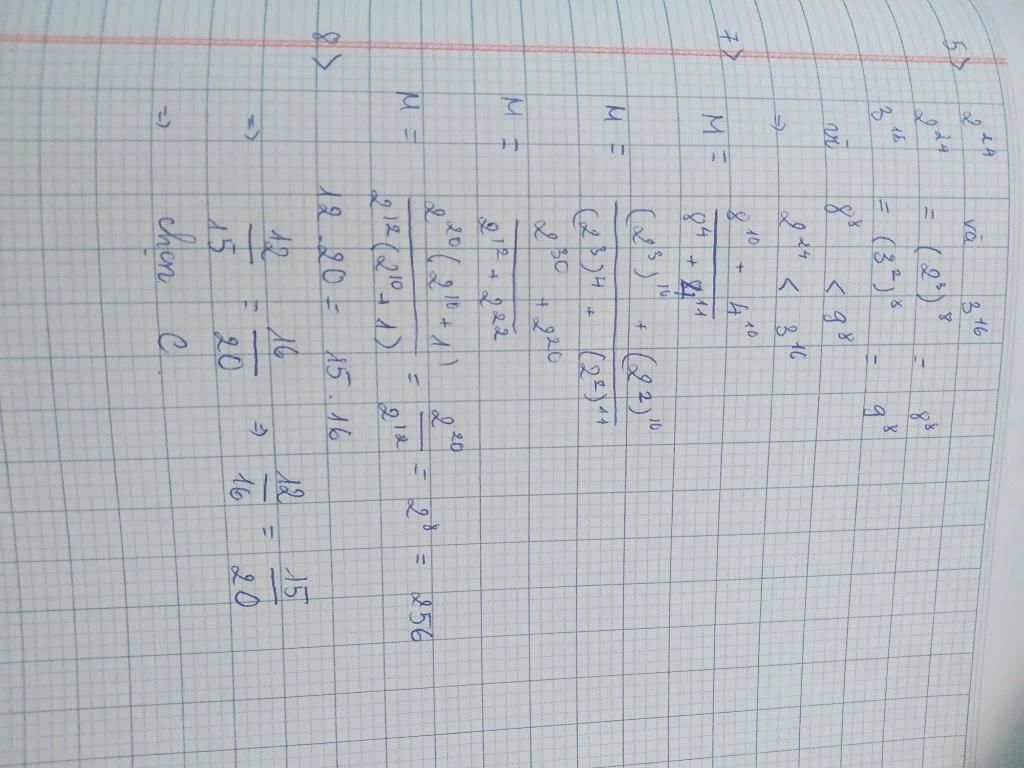 5> 2²⁴ và 3¹⁶
2²⁴ = (2³)⁸ = 8⁸
3¹⁶ = (3²)⁸ = 9⁸
8⁸ < 9⁸
=> 2²⁴ < 3¹⁶
7> M = (8¹⁰ + 4¹⁰) / (8⁴ + 4¹¹)
M = ((2³)¹⁰ + (2²)¹⁰) / ((2³)⁴ + (2²)¹¹)
M = (2³⁰ + 2²⁰) / (2¹² + 2²²)
M = (2²⁰(2¹⁰ + 1)) / (2¹²(2¹⁰ + 1)) = 2²⁰ / 2¹² = 2⁸ = 256
8> 12.20 = 15.16
=> 12/15 = 16/20 => 12/16 = 15/20
=> chọn C